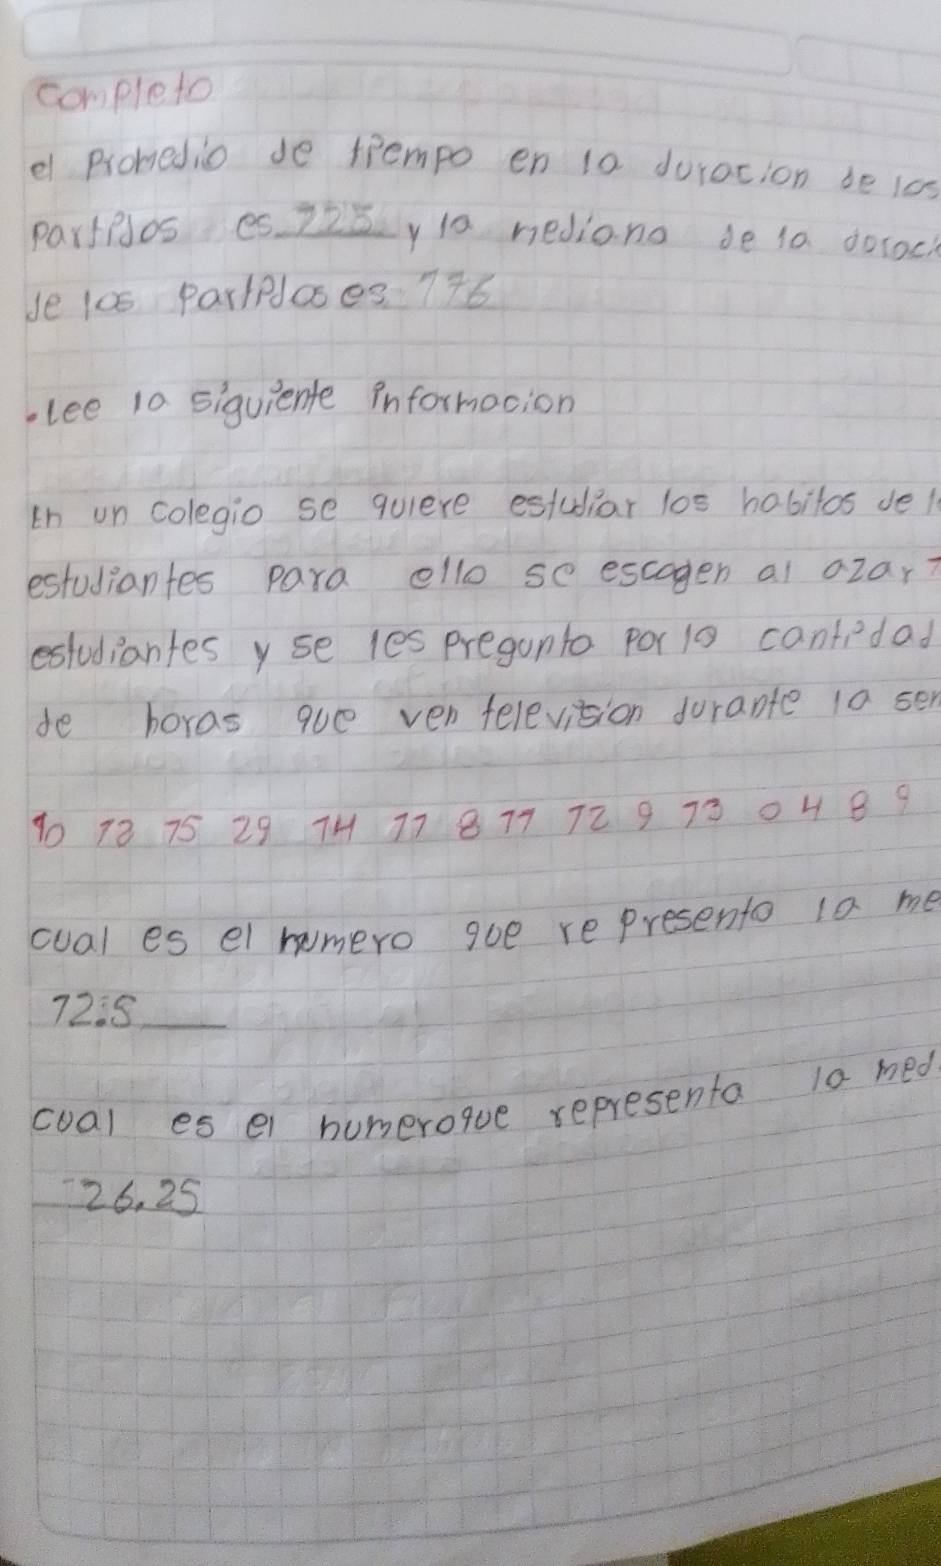 Completo
el Promedio de tiempo en la duracion de los
partidos es 725 y la mediana de la duraci
de los partidos es 776
. Lee la siguiente informacion
En un colegio se quiere estudiar los habitos de l
estudiantes para ello se escogen al azar 7
estudiantes y se les pregunto por lo cantidad
de horas que ven television durante la sem
10 78 75 29 74 77 8 77 72 9 73 0 4 8 9
cual es el numero que represento la me
72.5
cual es el numero que representa la med
26.25